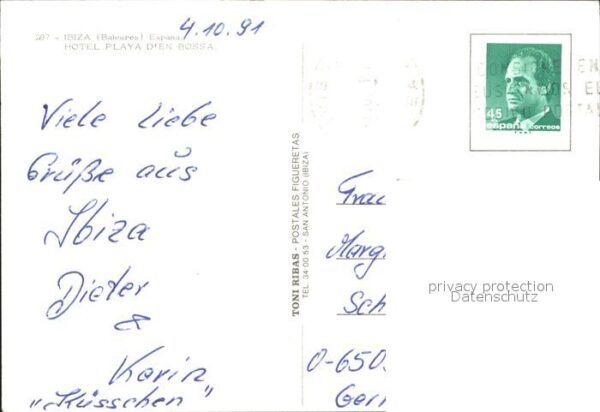 4.10.91
287 - IBIZA (Baleares) España.
HOTEL PLAYA D'EN BOSSA.
Viele liebe
Grüße aus
Ibiza
Dieter
&
Karin
"Küsschen"
TONI RIBAS - POSTALES FIGUERETAS
TEL. 34 00 53 - SAN ANTONIO (IBIZA)
45
españa correos
Frau
Marg
Sch
O-650
Ger
privacy protection
Datenschutz